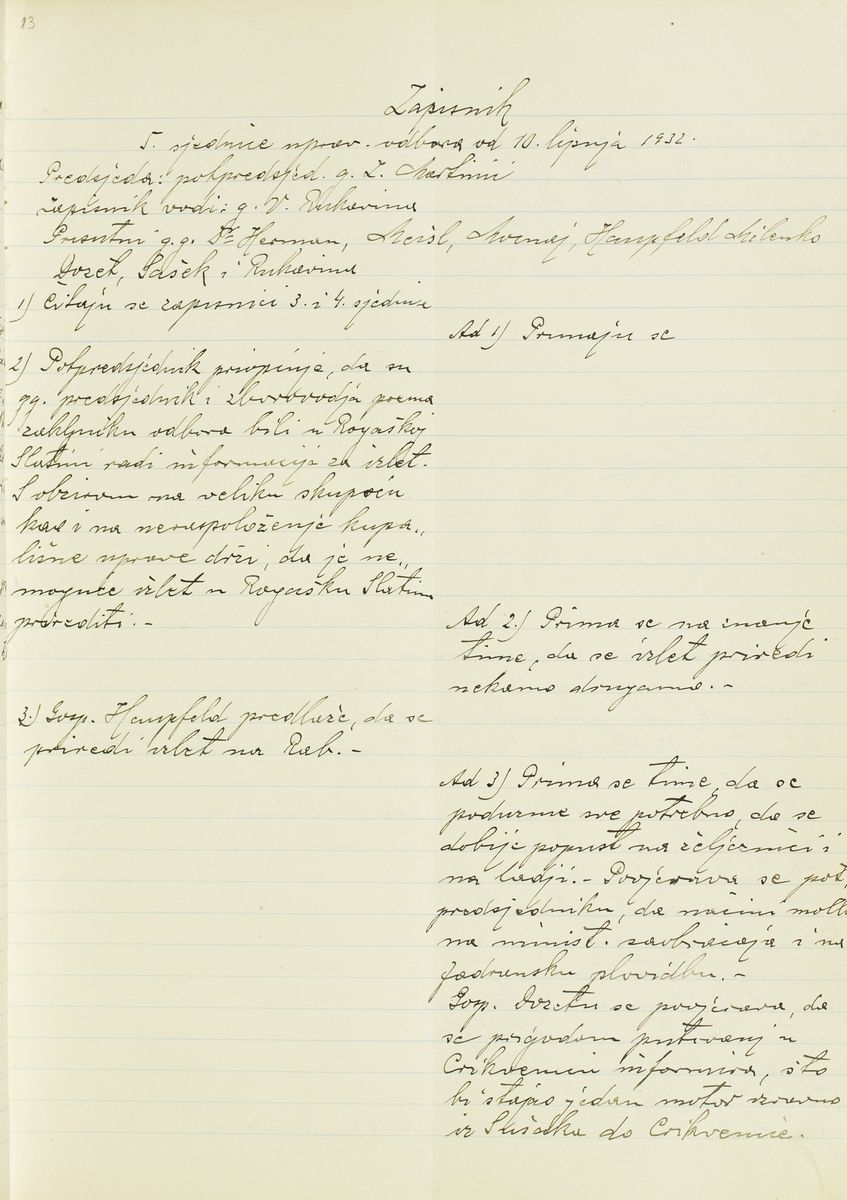 13
Zapisnik
5. sjednice uprav. odbora od 10. lipnja 1932.
Predsjeda: potpredsjed. g. Z. Martinis
zapisnik vodi: g. V. Rukavina
Prisutni g.g. Dr Herman, Mersl, Mocnaj, Haupfeld Milenko
Dozet, Sašek i Rukavina
1) Čitaju se zapisnici 3. i 4. sjednice
Ad 1) Primaju se
2) Potpredsjednik pripćinje, da su
gg. predsjednik i zborovodja prema
zaključku odbora bili u Rogaškoj
Slatini radi informacija za izlet.
S obzirom na veliku skupoću
kao i na neraspoloženje kupa„
lišne uprave drži, da je ne„
moguće izlet u Rogašku Slatinu
prirediti. -
Ad 2.) Prima se na znanje
time, da se izlet priredi
nekamo drugamo. -
3.) Gosp. Haupfeld predlaže, da se
priredi izlet na Rab. -
Ad 3) Prima se time, da se
poduzme sve potrebno, da se
dobije popust na željeznici i
na ladji. - Povjerava se pot„
predsjedniku, da načini molbu
na minist. saobraćaja i na
Jadransku plovidbu. -
Gosp. Dozetu se povjerava, da
se prigodom putovanj u
Crikvenicu informira, što
bi stajao jedan motor izravno
iz Sušaka do Crikvenice.